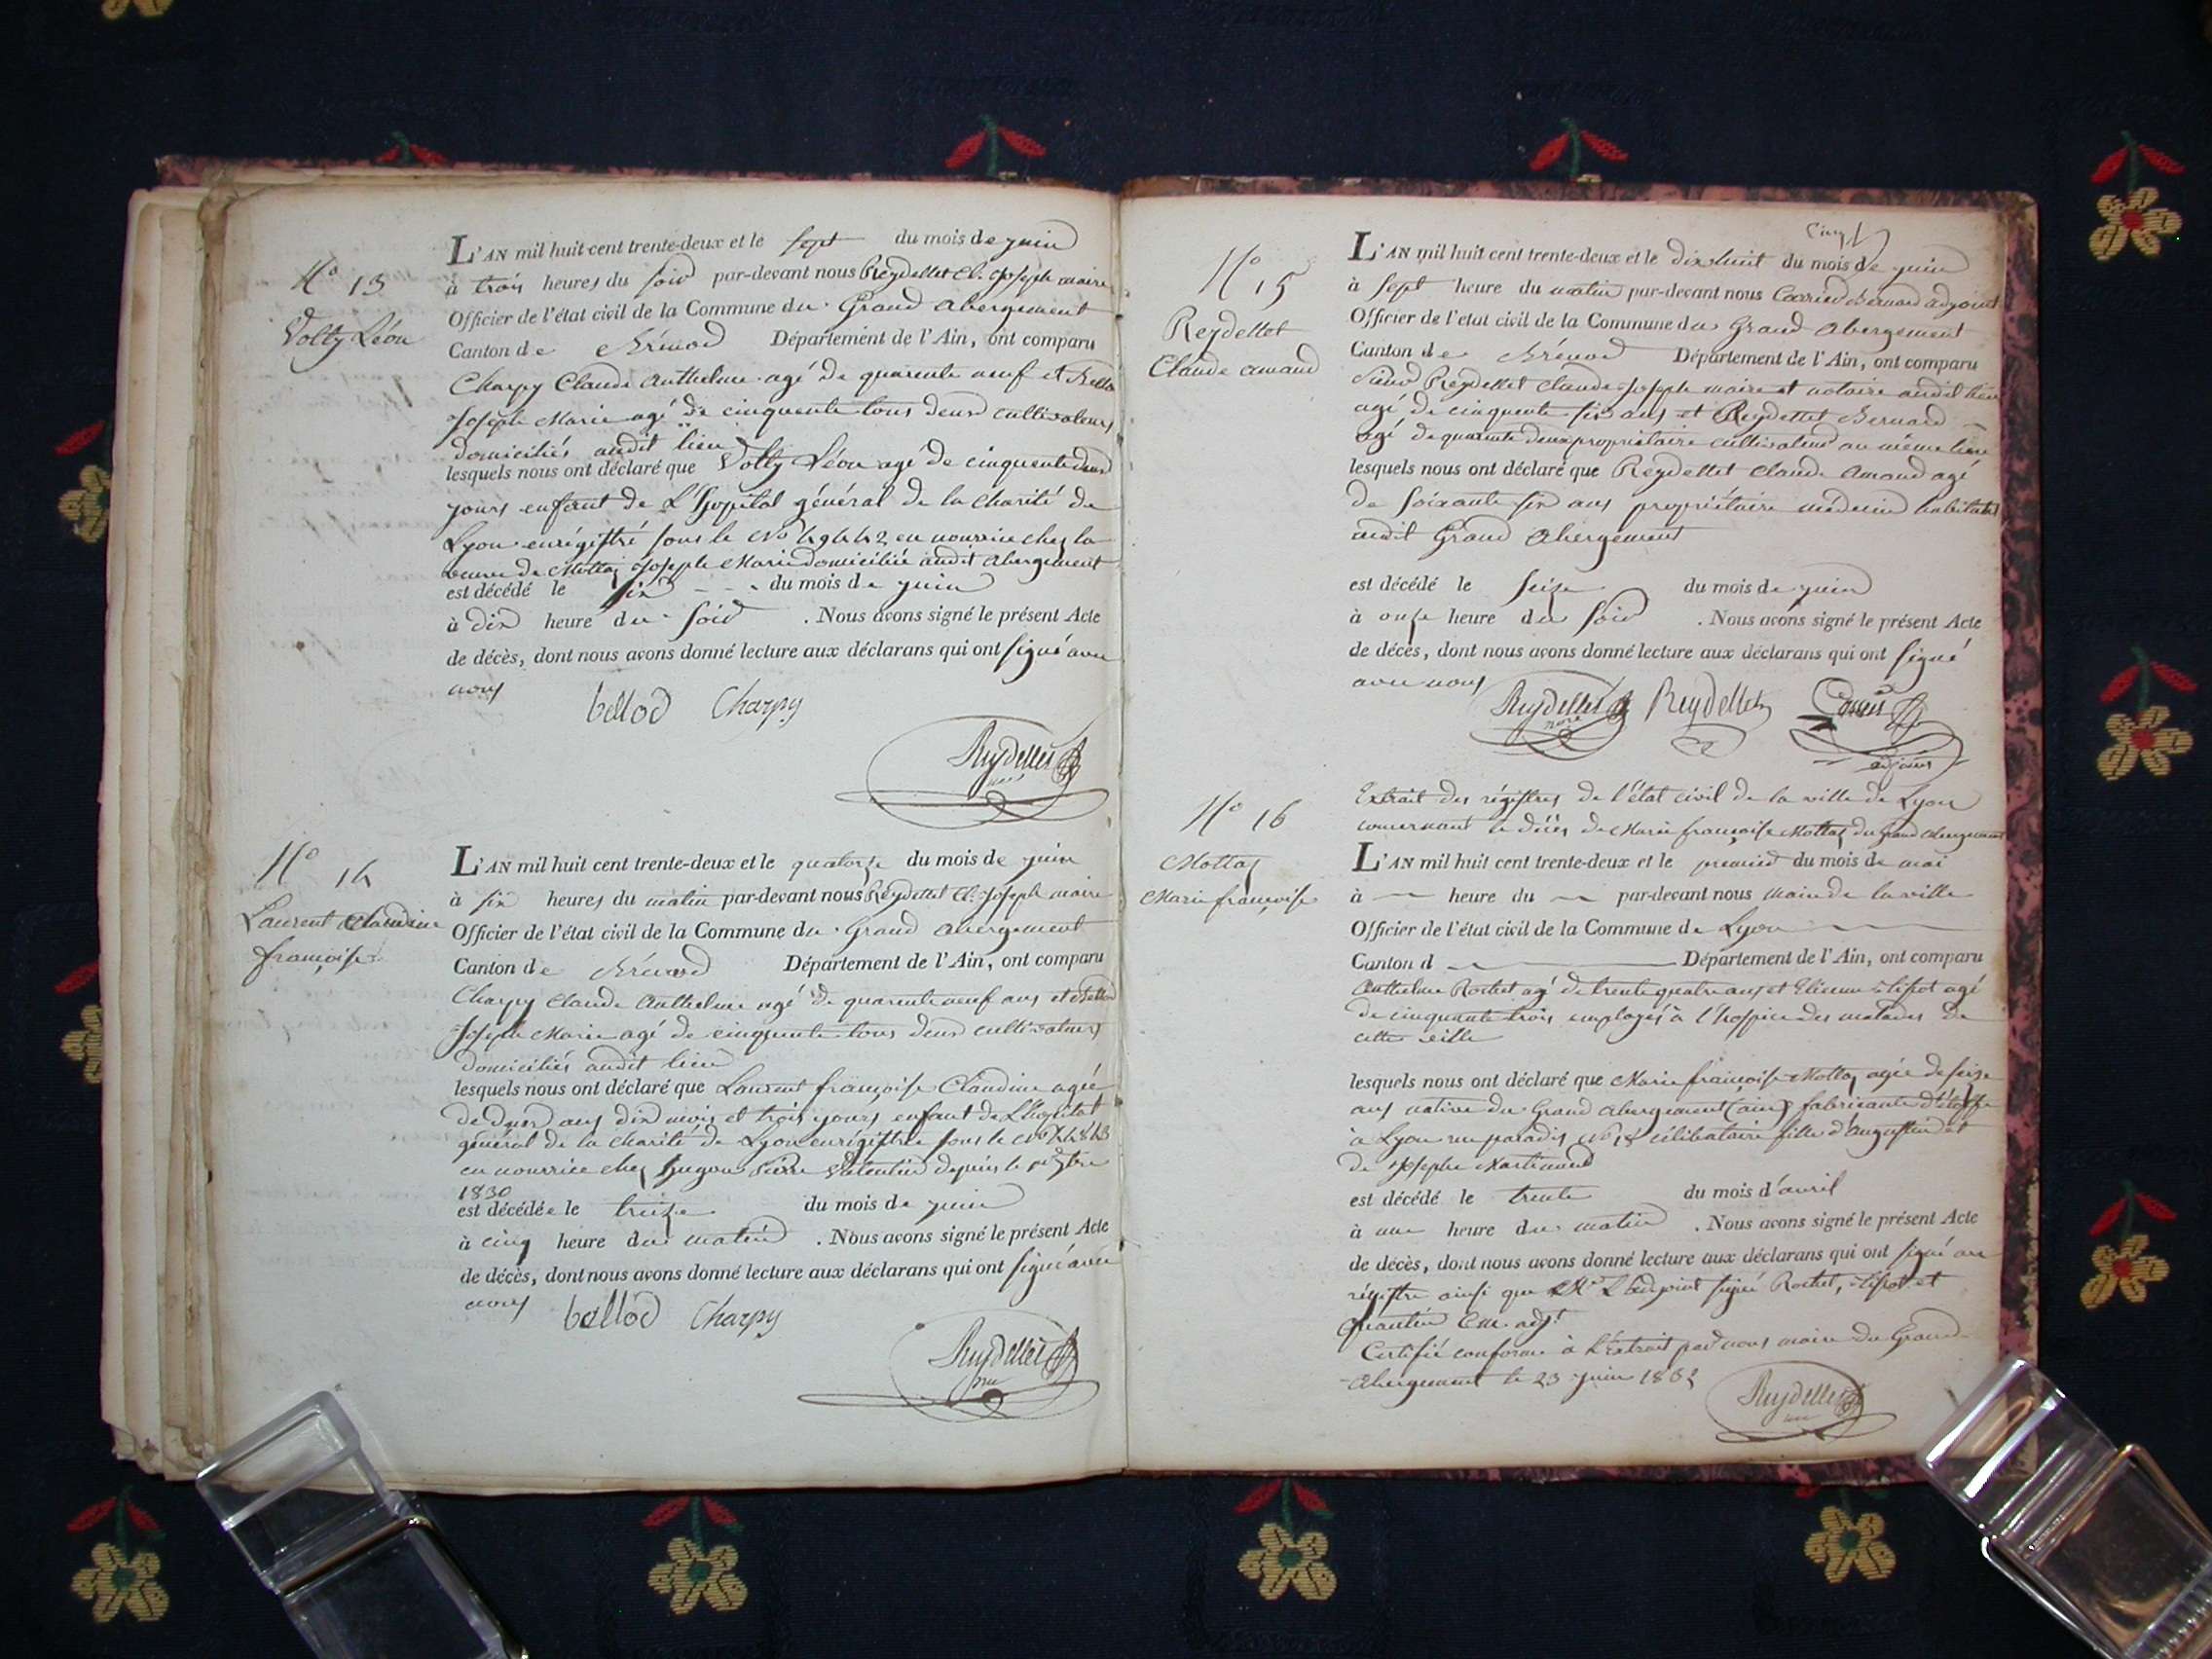 N° 13
Volty Léon
L'AN mil huit cent trente-deux et le sept du mois de juin
à trois heures du soir par-devant nous Reydellet Cl. Joseph maire
Officier de l'état civil de la Commune du Grand abergement
Canton de Brénod Département de l'Ain, ont comparu
Charpy Claude anthelme agé de quarente neuf et
Joseph Marie agé de cinquente tous deux cultivateurs
domiciliés audit lieu
lesquels nous ont déclaré que Volty Léon agé de cinquente deux
jours enfant de L'hopital général de la charité de
Lyon enrégistré sous le N° 49442 en nourrice chez la
veuve de Mottaz Joseph Marie domiciliée audit abergement
est décédé le six du mois de juin
à dix heure du soir . Nous avons signé le présent Acte
de décès, dont nous avons donné lecture aux déclarans qui ont signé avec
nous
bellod Charpy
Reydellet
N° 14
Laurent Claudine
françoise
L'AN mil huit cent trente-deux et le quatorze du mois de juin
à six heures du matin par-devant nous Reydellet Cl. Joseph maire
Officier de l'état civil de la Commune du Grand abergement
Canton de Brénod Département de l'Ain, ont comparu
Charpy Claude Anthelme agé de quarente neuf ans et Bellod
Joseph Marie agé de cinquente tous deux cultivateurs
domiciliés audit lieu
lesquels nous ont déclaré que Laurent françoise Claudine agée
de deux ans dix mois et trois jours enfant de L'hopital
général de la charité de Lyon enrégistrée sous le N°
en nourrice chez hugon Valentin depuis le
1830
est décédée le treize du mois de juin
à cinq heure du matin . Nous avons signé le présent Acte
de décès, dont nous avons donné lecture aux déclarans qui ont signé avec
nous
bellod Charpy
Reydellet
Cinq
N° 15
Reydellet
Claude amand
L'AN mil huit cent trente-deux et le dix huit du mois de juin
à sept heure du matin par-devant nous Carrier Bernard adjoint
Officier de l'etat civil de la Commune du Grand abergement
Canton de Brénod Département de l'Ain, ont comparu
sieur Reydellet Claude Joseph maire et notaire audit lieu
agé de cinquente six ans et Reydellet Bernard
agé de quarente deux propriétaire cultivateur au même lieu
lesquels nous ont déclaré que Reydellet Claude Amand agé
de soixante six ans propriétaire médecin habitant
audit Grand Abergement
est décédé le seize du mois de juin
à onze heure du soir . Nous avons signé le présent Acte
de décès, dont nous avons donné lecture aux déclarans qui ont signé
avec nous
Reydellet Reydellet Carrier
adjoint
N° 16
Mottaz
Marie françoise
Extrait des régistres de l'état civil de la ville de Lyon
concernant le décès de Marie françoise Mottaz du grand abergement
L'AN mil huit cent trente-deux et le premier du mois de mai
à heure du par-devant nous maire de la ville
Officier de l'état civil de la Commune de Lyon
Canton d Département de l'Ain, ont comparu
Anthelme Rochet agé de trente quatre ans et Etienne agé
de cinquante trois employés à l'hospice des malades de
cette ville
lesquels nous ont déclaré que Marie françoise Mottaz agée de seize
ans native du Grand abergement (ain) fabricante d'étoffe
à Lyon rue paradis N° célibataire fille d'augustin et
de Josephe Martinand
est décédé le trente du mois d'avril
à une heure du matin . Nous avons signé le présent Acte
de décès, dont nous avons donné lecture aux déclarans qui ont signé au
régistre ainsi que L'adjoint signé Rochet, et
adjt
Certifié conforme à L'Extrait par nous maire du Grand
abergement le 23 juin 1832
Reydellet